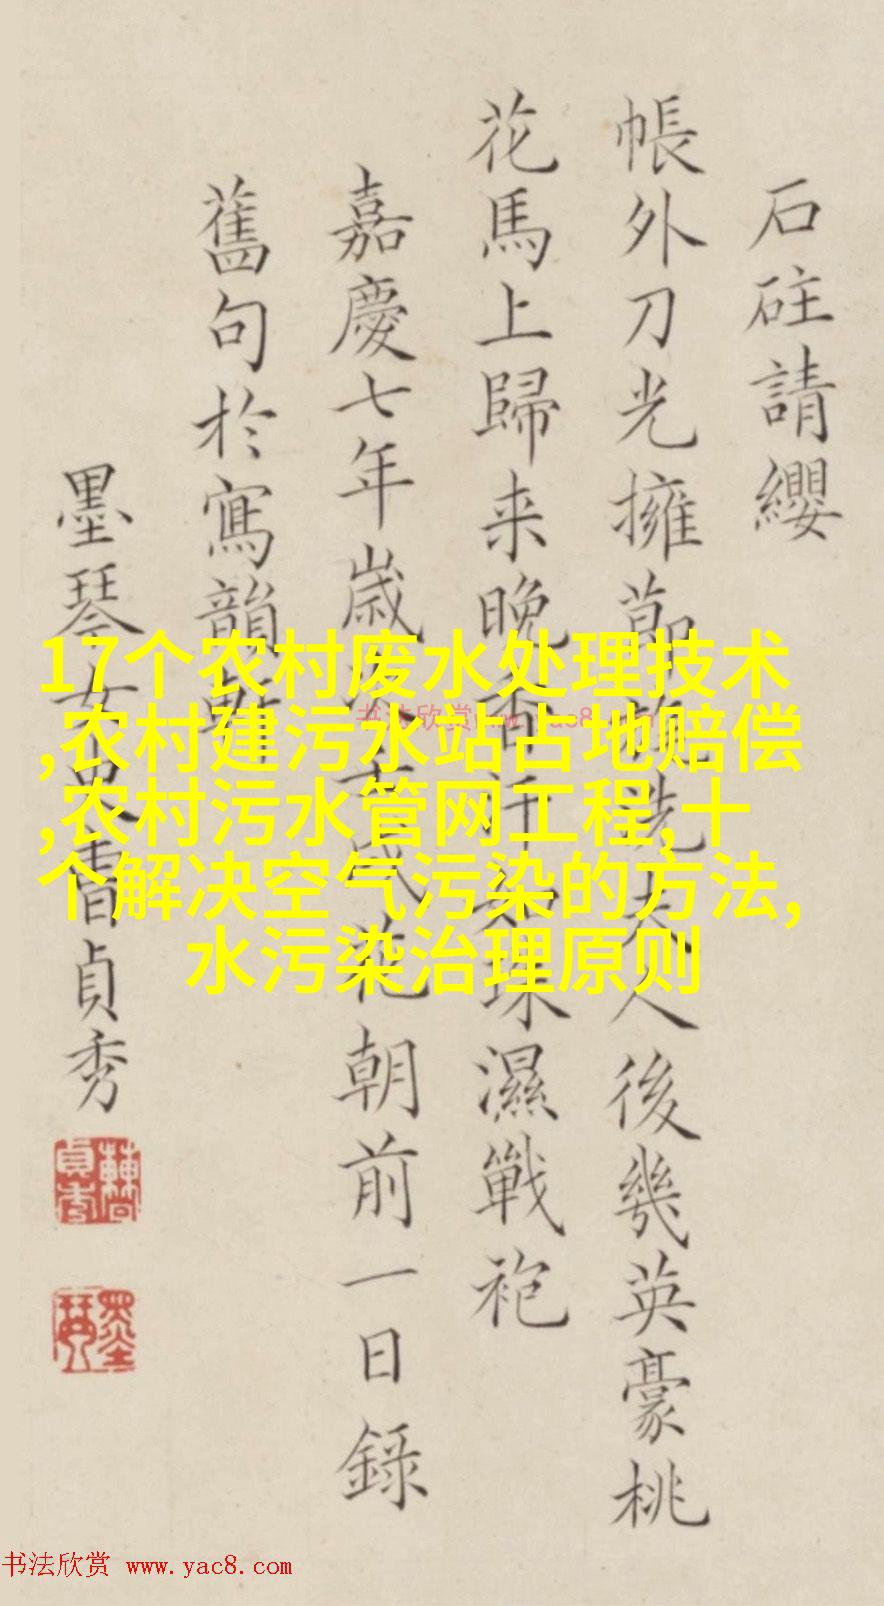 石砫請纓
帳外刀光擁節旄洗夫人後幾英豪桃
花馬上歸来晚香汗如珠濕戰袍
嘉慶七年歲次壬戌花朝前一日錄
舊句於寫韻軒
墨琴女史曹貞秀
17个农村废水处理技术
,农村建污水站占地赔偿
,农村污水管网工程,十
个解决空气污染的方法,
水污染治理原则
书法欣赏 www.yac8.com